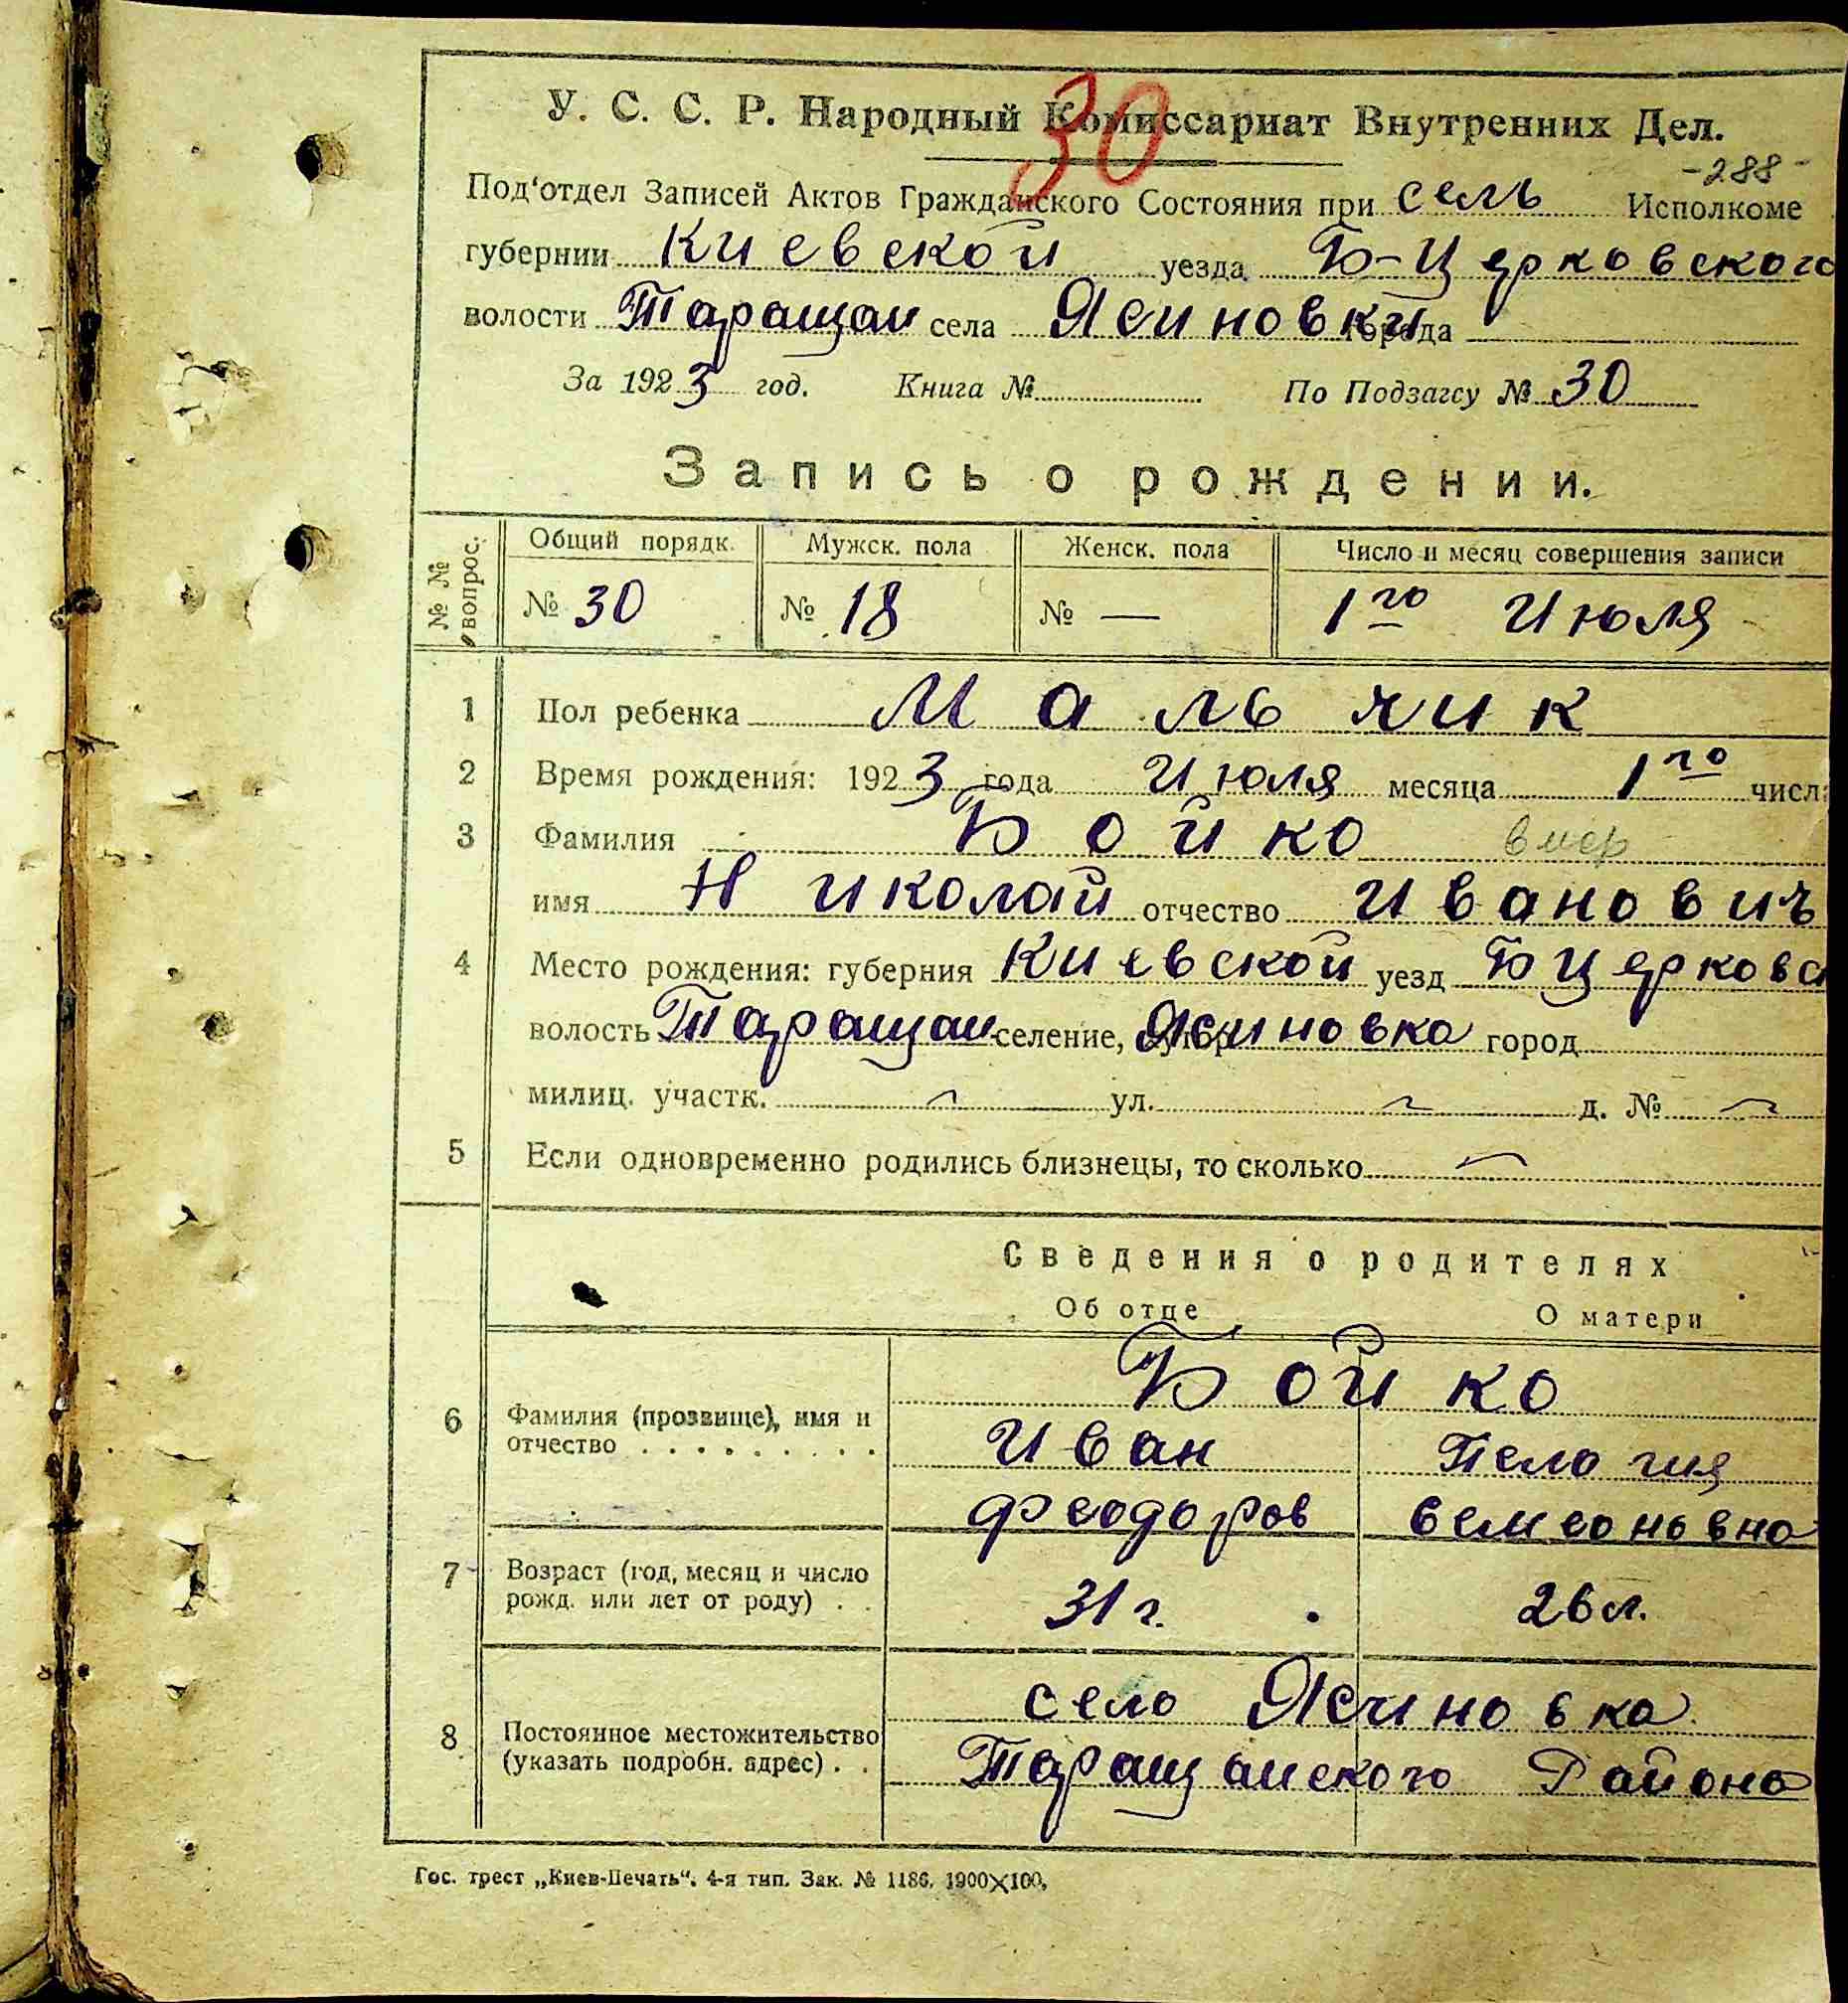 30
У. С. С. Р. Народный Комиссариат Внутренних Дел.
-288-
Под‘отдел Записей Актов Гражданского Состояния при сель Исполкоме
губернии Киевской уезда Б-Церковского
волости Таращан села Ясиновки города
За 1923 год. Книга № По Подзагсу № 30
Запись о рождении.
№ № вопрос. Общий порядк. Мужск. пола Женск. пола Число и месяц совершения записи
№ 30 № 18 № — 1го Июля
1 Пол ребенка Мальчик
2 Время рождения: 1923 года Июля месяца 1го числ
3 Фамилия Бойко вмер
имя Николай отчество Иванович
4 Место рождения: губерния Киевской уезд БЦерковс
волость Таращан селение, Ясиновка город
милиц. участк. ул. д. №
5 Если одновременно родились близнецы, то сколько
Сведения о родителях
Об отце О матери
Бойко
6 Фамилия (прозвище), имя и отчество Иван Пелогия
Феодоров Семеоновно
7 Возраст (год, месяц и число рожд. или лет от роду) 31 г. 26 л.
село Ясиновка
8 Постоянное местожительство (указать подробн. адрес) Таращанского Района
Гос. трест „Киев-Печать“. 4-я тип. Зак. № 1186. 1900×100.